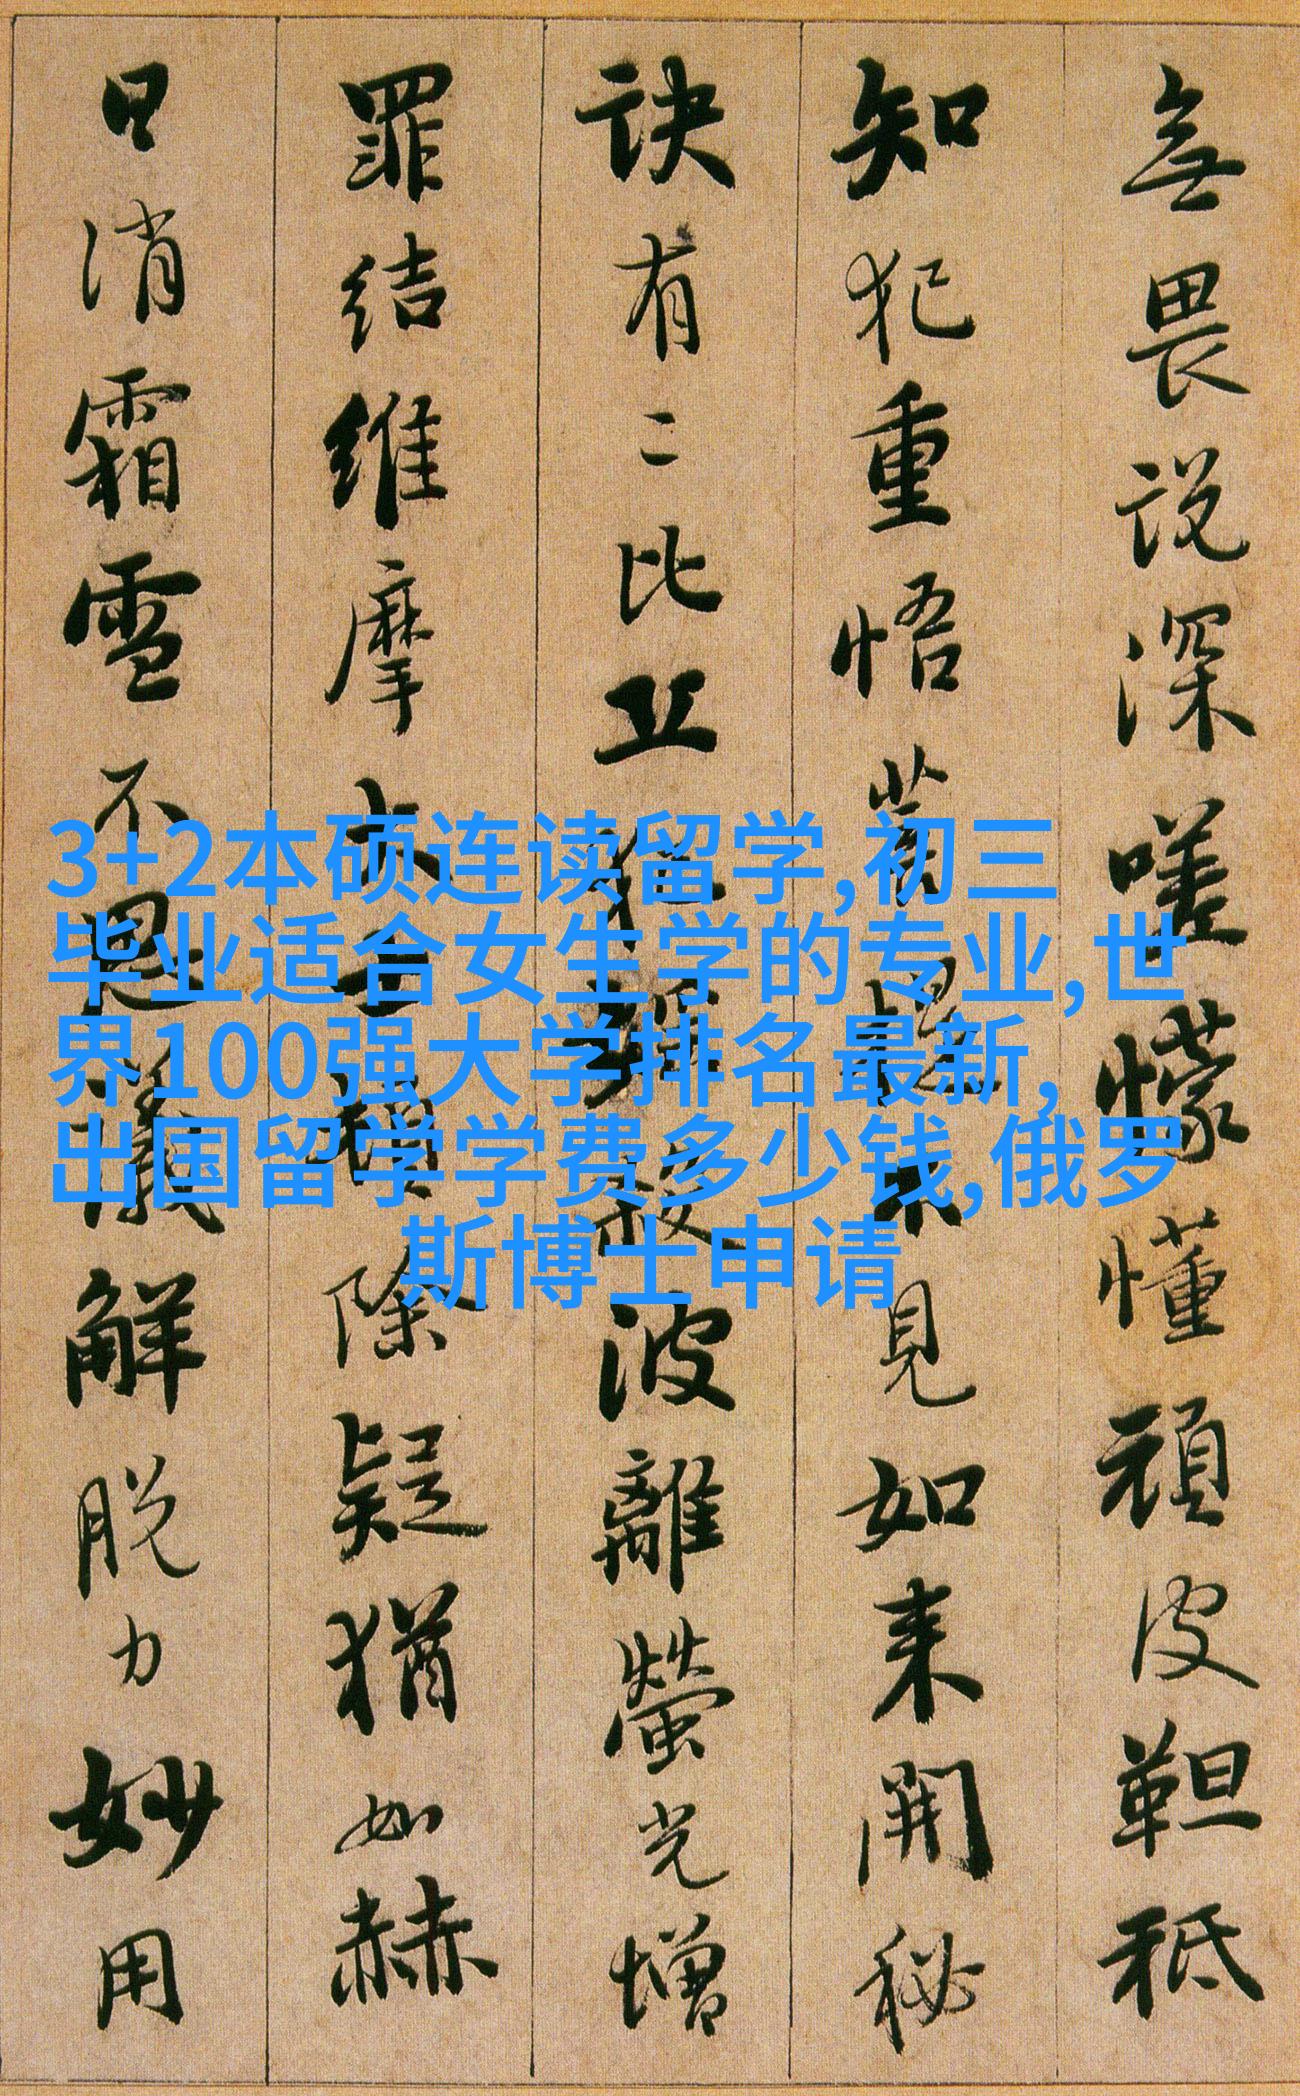 無畏说深嗟懞懂頑皮靼秪
知犯重悟菩提不見如来開秘
诀有二比丘犯婬殺波離螢光增
罪结維摩大士頓除疑猶如赫
日消霜雪不思議解脱力妙用
3+2本硕连读留学,初三
毕业适合女生学的专业,世
界100强大学排名最新,
出国留学学费多少钱,俄罗
斯博士申请